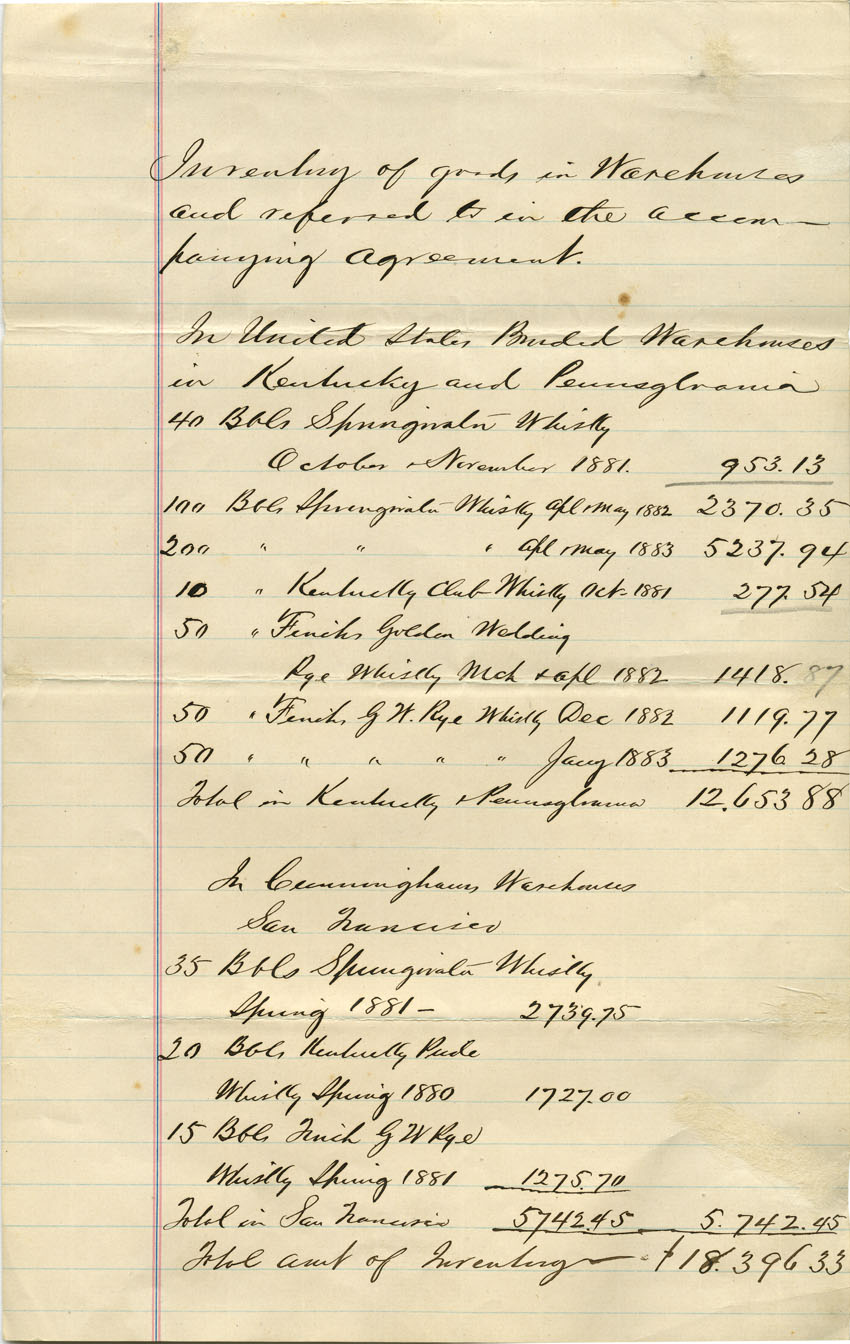 Inventory of goods in Warehouses
and referred to in the accom-
panying agreement.
In United States Bonded Warehouses
in Kentucky and Pennsylvania
40 Bbls Springwater Whisky
October & November 1881. 953.13
100 Bbls Springwater Whisky Apl & May 1882 2370.35
200 " " " Apl & May 1883 5237.94
10 " Kentucky Club Whisky Oct-1881 277.54
50 " Finchs Golden Wedding
Rye Whisky Mch & Apl 1882 1418.87
50 " Finchs G W. Rye Whisky Dec 1882 1119.77
50 " " " " " Jany 1883 1276 28
Total in Kentucky & Pennsylvania 12.653 88
In Cunninghams Warehouses
San Francisco
35 Bbls Springwater Whisky
Spring 1881- 2739.75
20 Bbls Kentucky Pride
Whisky Spring 1880 1727.00
15 Bbls Finch G W Rye
Whisky Spring 1881 1275.70
Total in San Francisco 5742.45 5.742.45
Total amt of Inventory - $18.396 33